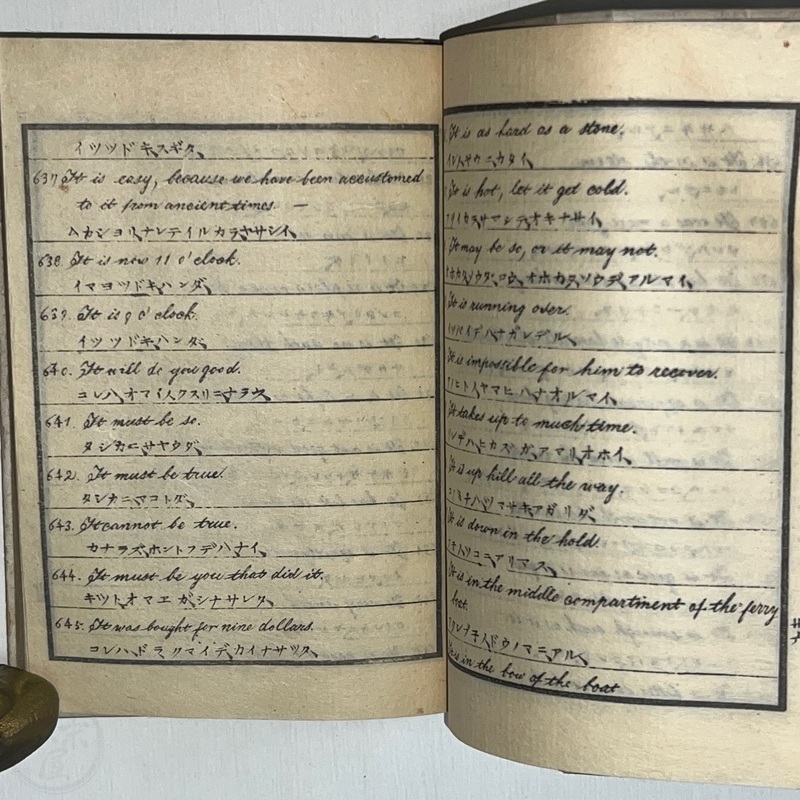 イツツドキスギタ、
637 It is easy, because we have been accustomed
to it from ancient times. —
ムカシヨリナレテイルカラヤサシイ、
638. It is now 11 o'clock.
イマヨツドキハンダ、
639. It is 9 o'clock.
イツツドキハンダ、
640. It will do you good.
コレハ、オマイノクスリニナラウ、
641. It must be so.
タシカニサヤウダ、
642. It must be true.
タシカニマコトダ、
643. It cannot be true.
カナラズ、ホントフデハナイ、
644. It must be you that did it.
キツト、オマエガ、シナサレタ、
645. It was bought for nine dollars.
コレハ、ドラクマイデ、カイナサツタ、
It is as hard as a stone.
イシノヤウニカタイ、
It is hot, let it get cold.
アツイカラサマシテオキナサイ、
It may be so, or it may not.
オホカタソウダロウ、オホカタソウデアルマイ、
It is running over.
It is impossible for him to recover.
アノヒトノヤマヒハナオルマイ、
It takes up to much time.
ヒカズガアマリオホイ、
It is up hill all the way.
サキアガリダ、
It is down in the hold.
ソコニアリマス、
It is in the middle compartment of the ferry
boat.
ドウノマニアル、
It is in the bow of the boat